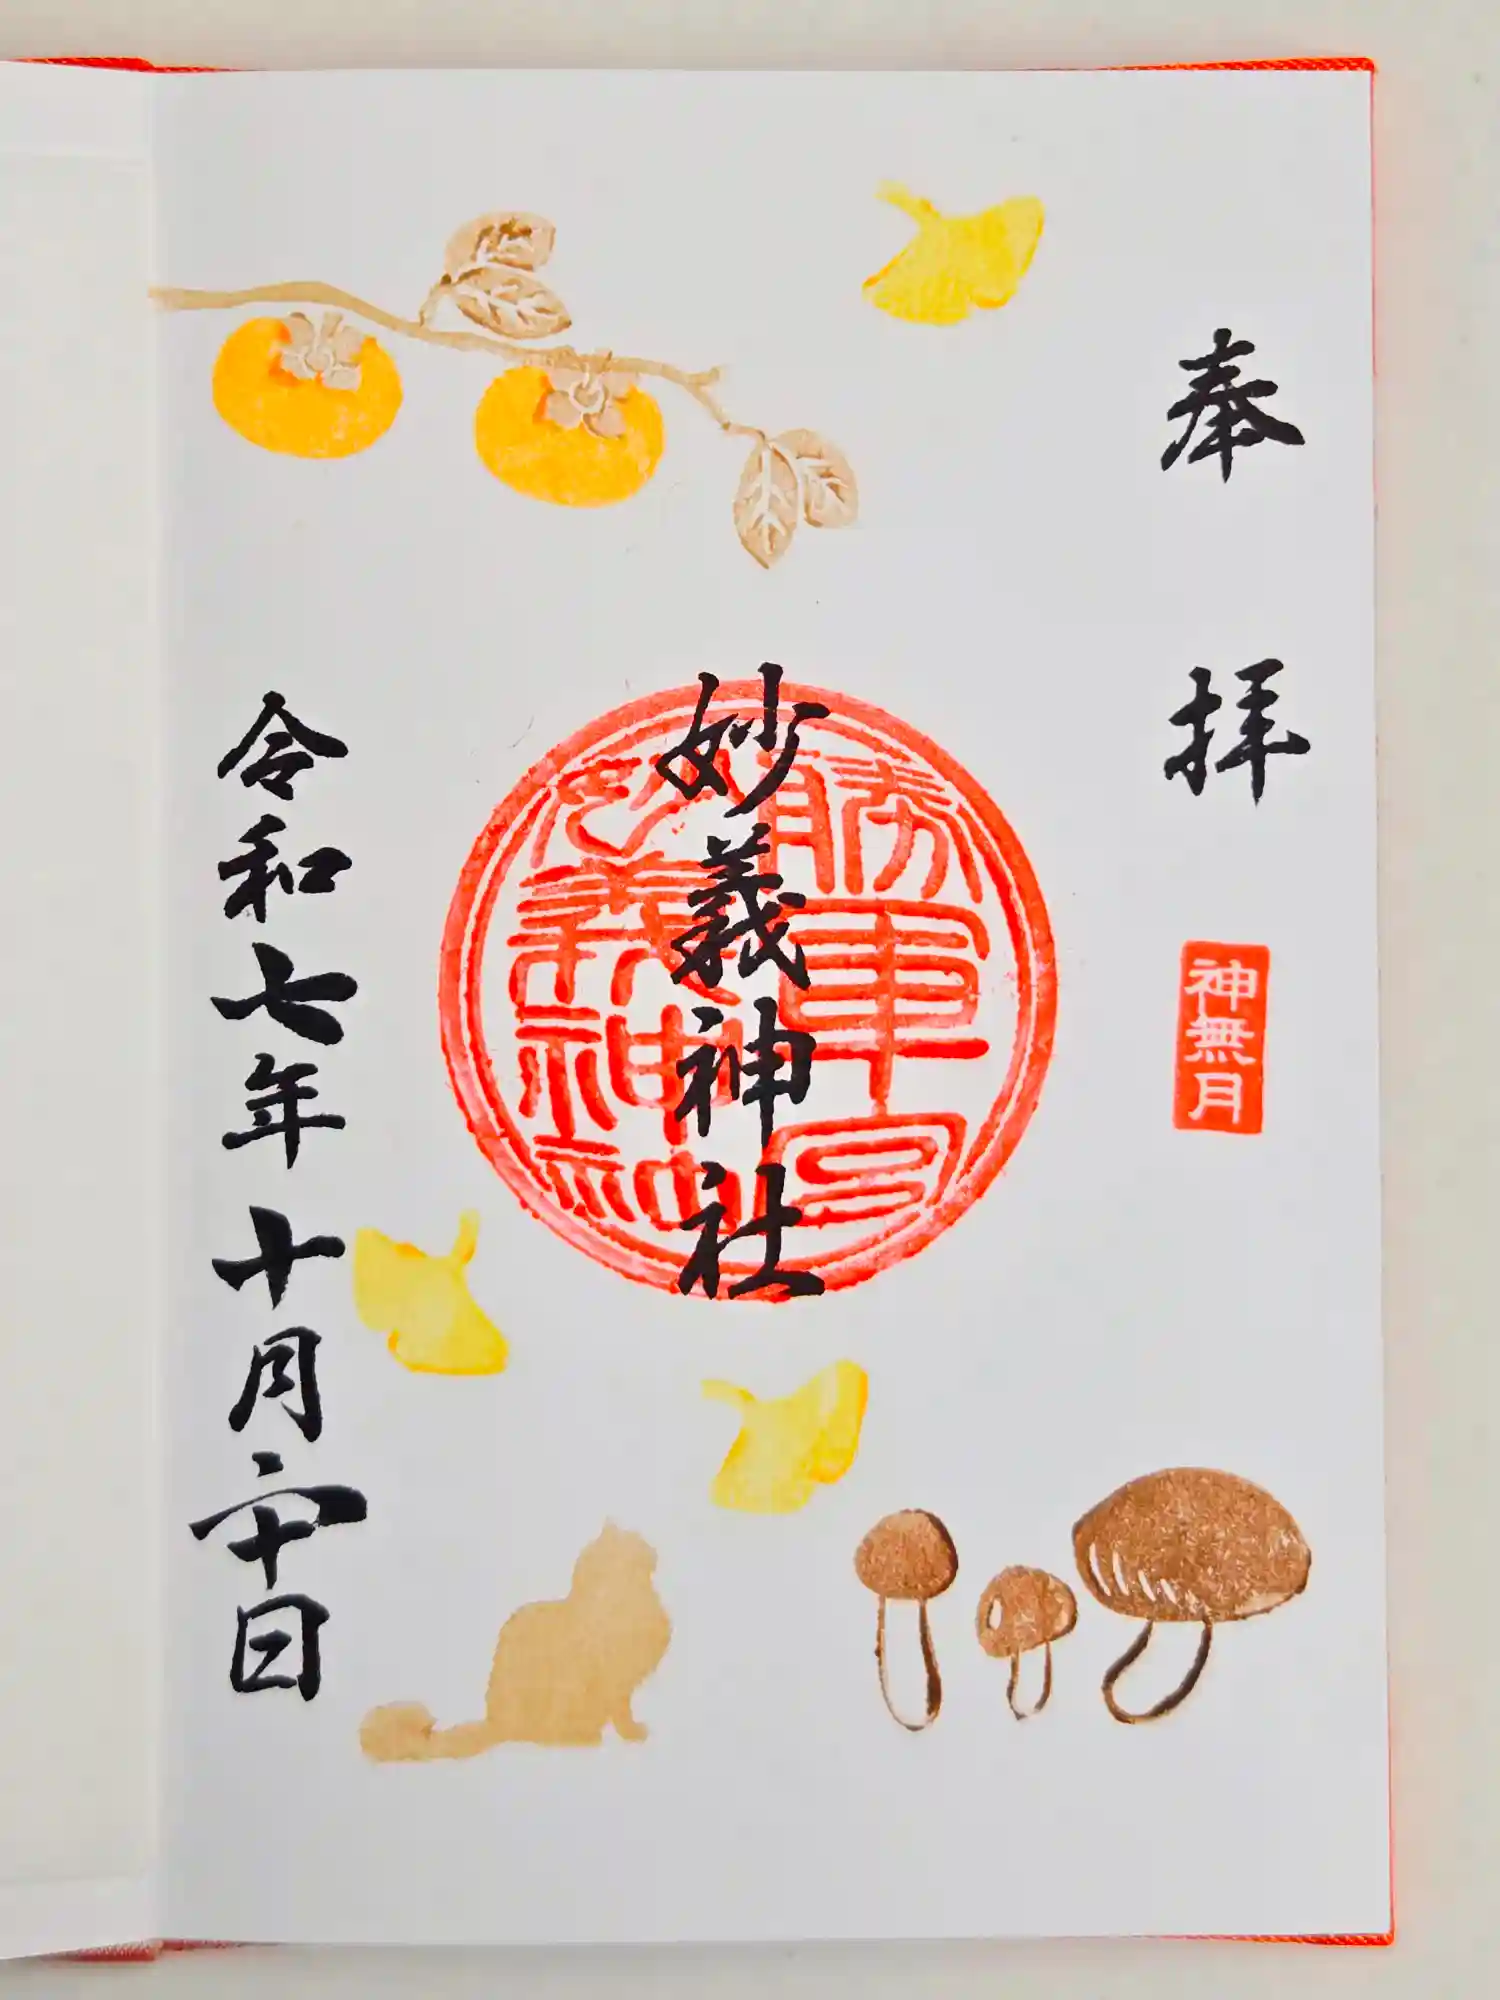 奉拝
神無月
妙義神社
勝軍宮
妙義神社
令和七年十月二十日